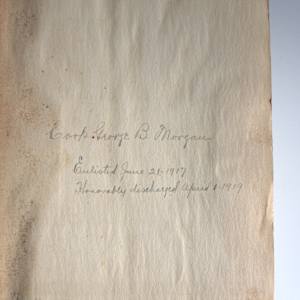 Corp. George B. Morgan
Enlisted June 21-1917
Honorably discharged April 1-1919